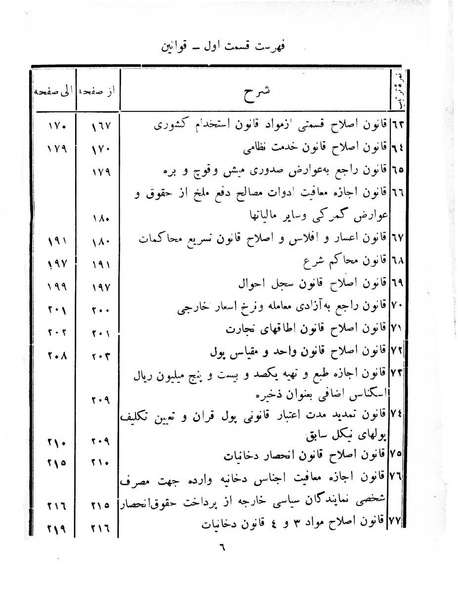 فهرست قسمت اول - قوانین
نمره ترتیب شرح از صفحه الی صفحه
۶۳ قانون اصلاح قسمتی ازمواد قانون استخدام کشوری ۱۶۷ ۱۷۰
۶۴ قانون اصلاح قانون خدمت نظامی ۱۷۰ ۱۷۹
۶۵ قانون راجع به‌عوارض صدوری میش وقوچ و بره ۱۷۹
۶۶ قانون اجازه معافیت ادوات مصالح دفع ملخ از حقوق و
عوارض گمرکی وسایر مالیاتها ۱۸۰
۶۷ قانون اعسار و افلاس و اصلاح قانون تسریع محاکمات ۱۸۰ ۱۹۱
۶۸ قانون محاکم شرع ۱۹۱ ۱۹۷
۶۹ قانون اصلاح قانون سجل احوال ۱۹۷ ۱۹۹
۷۰ قانون راجع به‌آزادی معامله ونرخ اسعار خارجی ۲۰۰ ۲۰۱
۷۱ قانون اصلاح قانون اطاقهای تجارت ۲۰۱ ۲۰۲
۷۲ قانون اصلاح قانون واحد و مقیاس پول ۲۰۳ ۲۰۸
۷۳ قانون اجازه طبع و تهیه یکصد و بیست و پنج میلیون ریال
اسکناس اضافی بعنوان ذخیره ۲۰۹
۷۴ قانون تمدید مدت اعتبار قانونی پول قران و تعیین تکلیف
پولهای نیکل سابق ۲۰۹ ۲۱۰
۷۵ قانون اصلاح قانون انحصار دخانیات ۲۱۰ ۲۱۵
۷۶ قانون اجازه معافیت اجناس دخانیه وارده جهت مصرف
شخصی نمایندگان سیاسی خارجه از پرداخت حقوق‌انحصار ۲۱۵ ۲۱۶
۷۷ قانون اصلاح مواد ۳ و ۴ قانون دخانیات ۲۱۶ ۲۱۹
۶